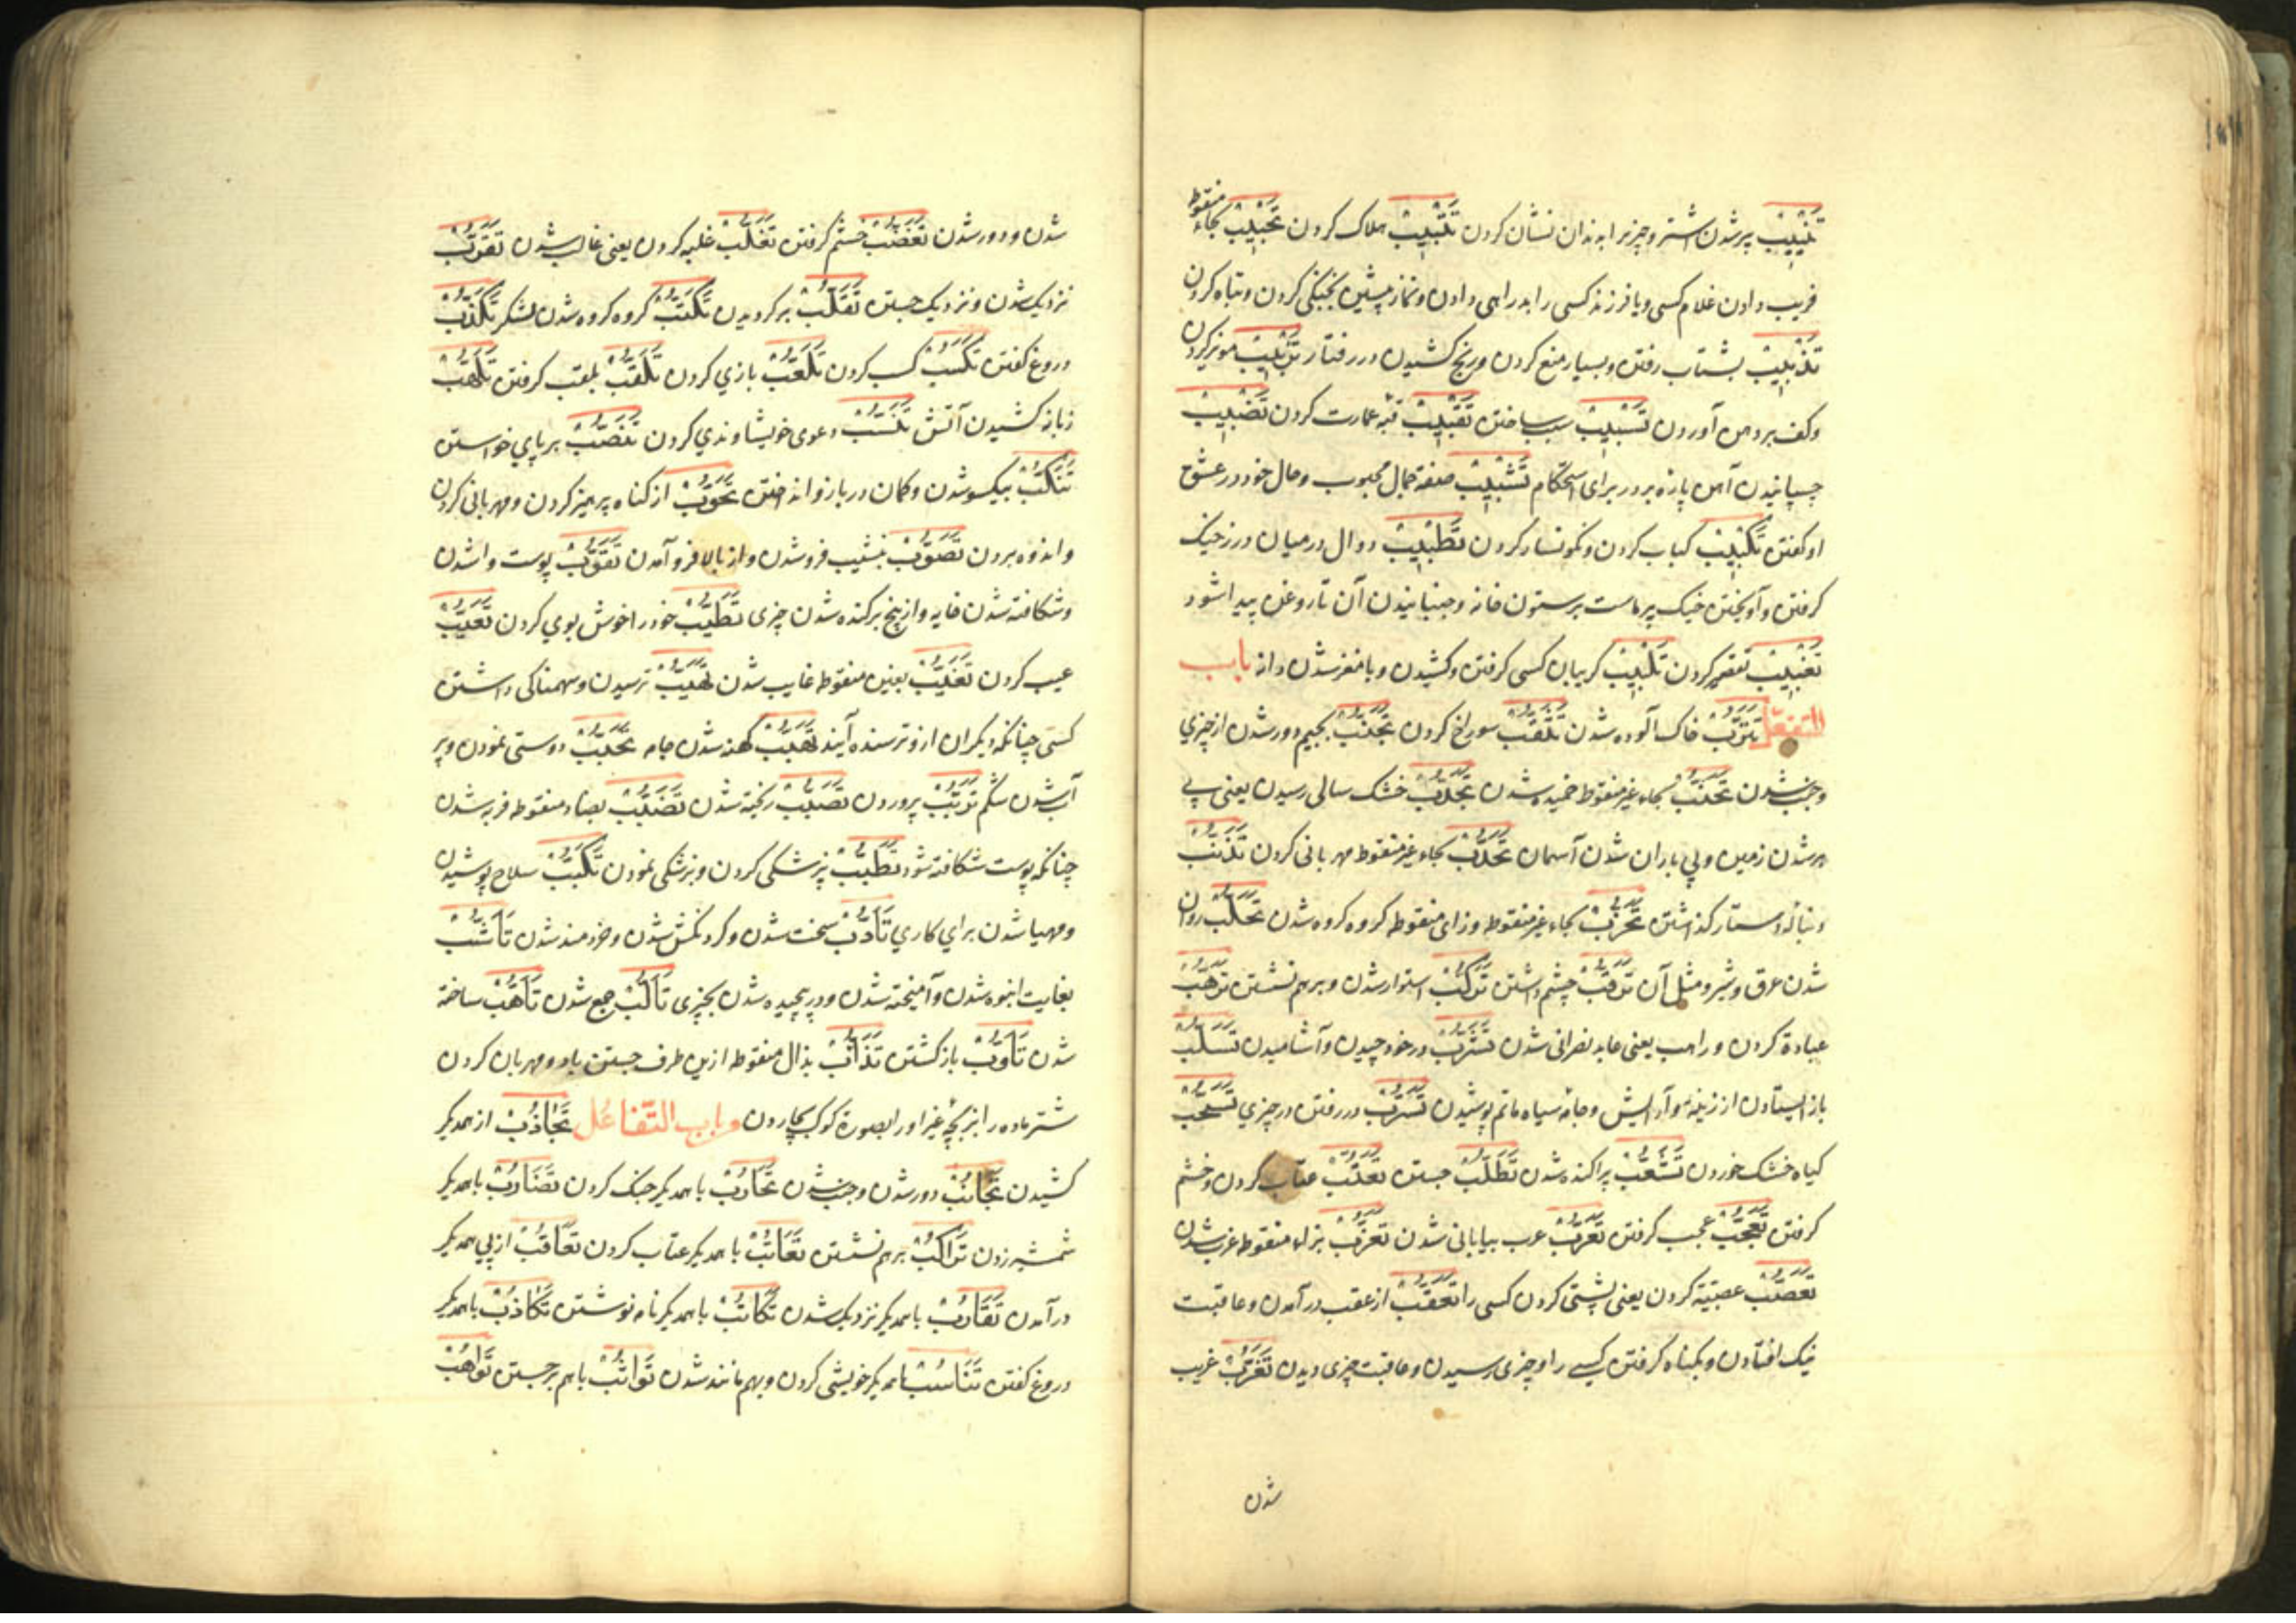 تنییب پیر شدن اشتر و چیزیرا بدندان نشان کردن تتبیب هلاک کردن تخبیب بخاء منقوط
فریب دادن غلام کسی و یا فرزند کسی را بدراهی دادن و نماز پیشین بخبنکی کردن و تباه کردن
تذبیب بشتاب رفتن و بسیار منع کردن و رنج کشیدن در رفتار تزبیب مویز کردن
و کف بر دهن آوردن تسبیب سبب ساختن تقبیب قبه عمارت کردن تضبیب
چسپانیدن آهن پاره بر در برای استحکام تشبیب صفة جمال محبوب و حال خود در عشق
او کفتن تکبیب کباب کردن و نکونسار کردن تطبیب دوال در میان درز خیک
کرفتن و آویختن خیک پر ماست بر ستون خانه و جنبانیدن آن تا روغن پیدا شود
تغبیب تقصیر کردن تلبیب کریبان کسی کرفتن و کشیدن و با مغز شدن دانه باب
التفعّل تترّب خاک آلوده شدن تثقّب سوراخ کردن تجنّب بجیم دور شدن از چیزي
و جنب شدن تحنّب بحاء غیر منقوط خمیده شدن تجدّب خشک سالی رسیدن یعنی بی
بر شدن زمین و بی باران شدن آسمان تحدّب بحاء غیر منقوط مهربانی کردن تذنّب
دنبالۀ دستار کذاشتن تحزّب بحاء غیر منقوط و زای منقوطه کروه کروه شدن تحلّب روان
شدن عرق و شیر و مثل آن ترقّب چشم داشتن ترکّب استوار شدن و بر هم نشستن ترهّب
عبادة کردن و راهب یعنی عابد نصرانی شدن تشرّب در خود چیدن و آشامیدن تسلّب
باز ایستادن از زینة و آرایش و جامۀ سیاه ماتم پوشیدن تسرّب در رفتن در چیزي تسحّب
کیاه خشک خوردن تشعّب پراکنده شدن تطلّب جستن تعتّب عتاب کردن و خشم
کرفتن تعجّب عجب کرفتن تعرّب عرب بیابانی شدن تعزّب بزاء منقوطه عزب شدن
تعصّب عصبیّة کردن یعنی پشتی کردن کسی را تعقّب از عقب در آمدن و عاقبت
نیک افتادن و بکناه کرفتن کسی را و چیزی رسیدن و عاقبت چیزی دیدن تغرّب غریب
شدن
شدن و دور شدن تغضّب خشم کرفتن تغلّب غلبه کردن یعنی غالب شدن تقرّب
نزدیک شدن و نزدیک جستن تقلّب بر کردیدن تکتّب کروه کروه شدن لشکر تکذّب
دروغ کفتن تکسّب کسب کردن تلعّب بازي کردن تلقّب بلقب کرفتن تلهّب
زبانه کشیدن آتش تنسّب دعوی خویشاوندي کردن تنصّب بر پاي خواستن
تنکّب بیکسو شدن و کمان در بازو انداختن تحوّب از کناه پرهیز کردن و مهربانی کردن
و اندوه بردن تصوّب بنشیب فرو شدن و از بالا فرو آمدن تقوّب پوست واشدن
و شکافته شدن خایه و از بیخ برکنده شدن چیزی تطیّب خود را خوش بوي کردن تعیّب
عیب کردن تغیّب بغین منقوطه غایب شدن تهیّب ترسیدن و سهمناکی داشتن
کسی چنانکه دیکران ازو ترسنده آیند تهبّب کهنه شدن جامه تحبّب دوستی نمودن و پر
آب شدن شکم تربّب پروردن تصبّب ریخته شدن تضبّب بضاد منقوطه فربه شدن
چنانکه پوست شکافته شود تطبّب پزشکی کردن و پزشکی نمودن تکبّب سلاح پوشیدن
و مهیا شدن براي کاري تأدّب سخت شدن و کردنکش شدن و خردمند شدن تأشّب
بغایت انبوه شدن و آمیخته شدن و در پیچیده شدن بچیزی تألّب جمع شدن تأهّب ساخته
شدن تأوّب باز کشتن تذأّب بذال منقوطه ازین طرف جستن باد و مهربان کردن
شتر ماده را بر بچۀ غیر او را بصورة کرک بچار دن و باب التّفاعُل تجاذب از همدیکر
کشیدن تجانب دور شدن و جنب شدن تحارب با همدیکر جنک کردن تضارب با همدیکر
شمشیر زدن تراکب بر هم نشستن تعاتب با همدیکر عتاب کردن تعاقب از پی همدیکر
در آمدن تقارب با همدیکر نزدیک شدن تکاتب با همدیکر نامه نوشتن تکاذب با همدیکر
دروغ کفتن تناسب با همدیکر خویشی کردن و بهم مانند شدن تواثب با هم بر جستن تواهب